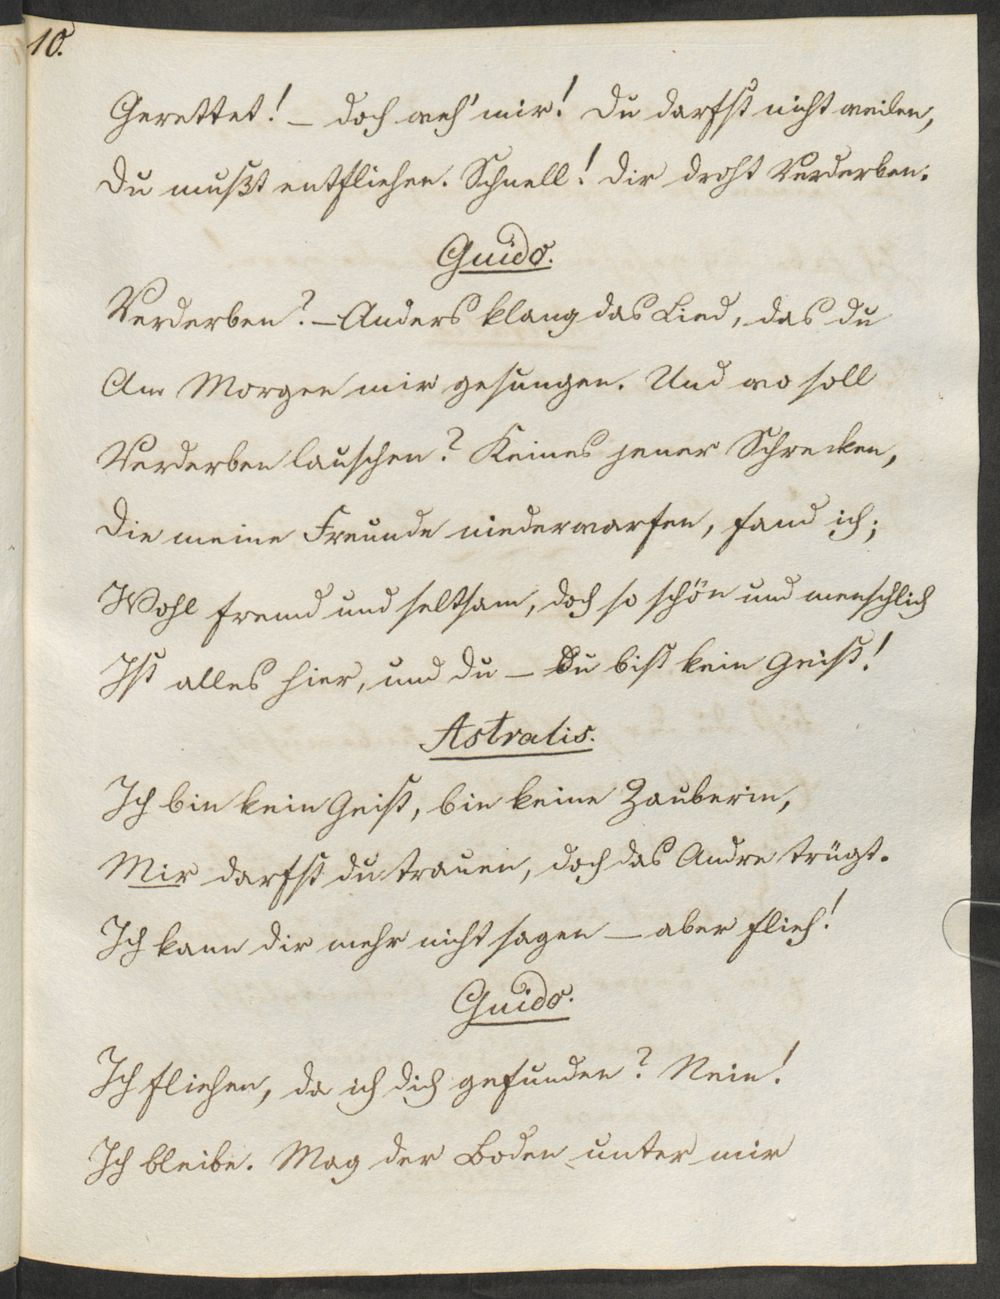 10.
Gerettet! – doch weh' mir! Du darfst nicht weilen,
Du mußt entfliehen. Schnell! Dir droht Verderben.
Guido.
Verderben? – Anders klang das Lied, das du
Am Morgen mir gesungen. Und wo soll
Verderben lauschen? Keines jener Schrecken,
Die meine Freunde niederwarfen, fand ich;
Wohl fremd und seltsam, doch so schön und menschlich
Ist alles hier, und du – Du bist kein Geist!
Astralis.
Ich bin kein Geist, bin keine Zauberin,
Mir darfst du trauen, doch das Andre trügt.
Ich kann dir mehr nicht sagen – aber flieh!
Guido.
Ich fliehen, da ich dich gefunden? Nein!
Ich bleibe. Mag der Boden unter mir